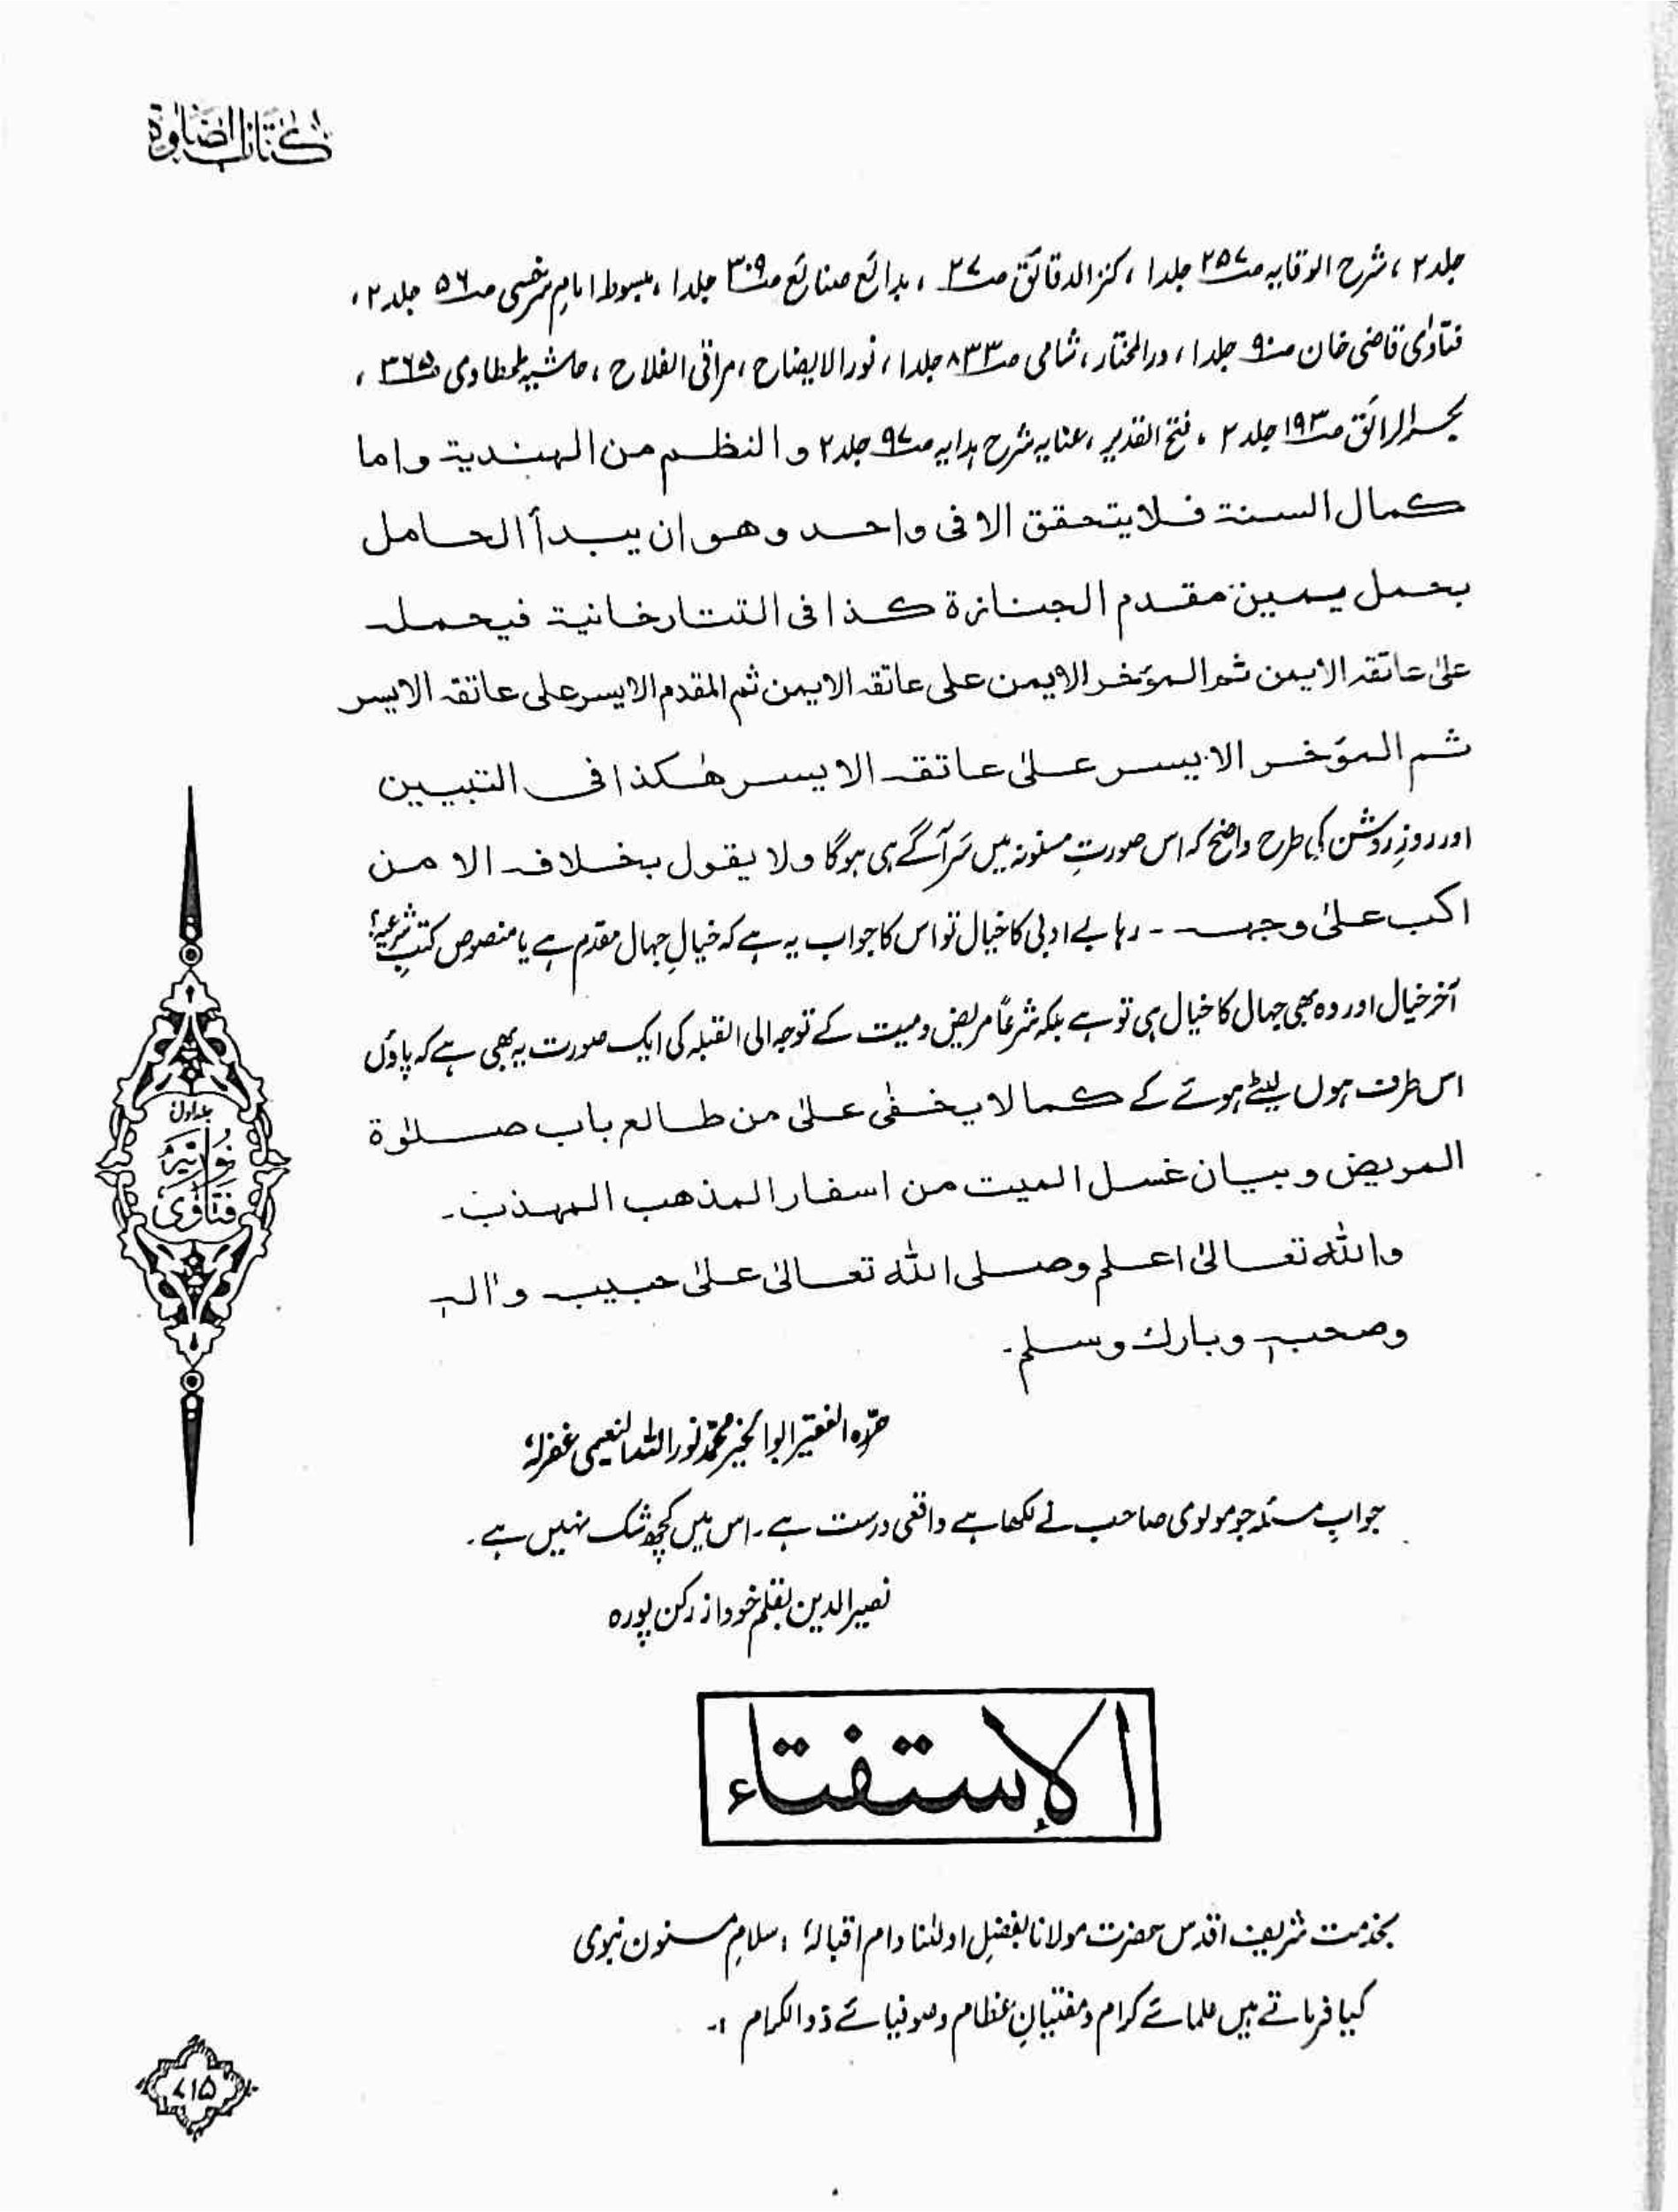 كتاب الصلوٰة
جلد ۲، شرح الوقایہ صـ ۲۵۷ جلد ۱، کنز الدقائق صـ ۴۷، بدائع صنائع صـ ۳۰۹ جلد ۱، مبسوط امام سرخسی صـ ۵۶ جلد ۲،
فتاوٰی قاضی خان صـ ۹۰ جلد ۱، در المختار، شامی صـ ۸۳۳ جلد ۱، نور الایضاح، مراقی الفلاح، حاشیہ طحطاوی صـ ۳۶۵،
بحر الرائق صـ ۱۹۳ جلد ۲، فتح القدیر، عنایہ شرح ہدایہ صـ ۹۷ جلد ۲ و النظم من الهندية واما
كمال السنة فلا يتحقق الا فى واحد وهو ان يبدأ الحامل
بحمل يمين مقدم الجنازة كذا فى التتارخانية فيحمله
علىٰ عاتقه الايمن ثم المؤخر الايمن على عاتقه الايمن ثم المقدم الايسر على عاتقه الايسر
ثم المؤخر الايسر علىٰ عاتقه الايسر هٰكذا فى التبيين
اور روزِ روشن کی طرح واضح کہ اس صورتِ مسنونہ میں سَر آگے ہی ہوگا ولا يقول بخلافه الا من
اكب علىٰ وجهه -- رہا بے ادبی کا خیال تو اس کا جواب یہ ہے کہ خیالِ جہال مقدم ہے یا منصوص کتبِ شرعیہ؟
آخر خیال اور وہ بھی جہال کا خیال ہی تو ہے بلکہ شرعًا مریض و میت کے توجہ الی القبلہ کی ایک صورت یہ بھی ہے کہ پاؤں
اس طرف ہوں لیٹے ہوئے کے كما لا يخفٰى علىٰ من طالع باب صلوٰة
المريض وبيان غسل الميت من اسفار المذهب المهذب۔
والله تعالىٰ اعلم وصلى الله تعالىٰ علىٰ حبيبه واٰلہٖ
وصحبہٖ وبارك وسلم۔
حرّرہ الفقیر ابو الخیر محمّد نور اللہ النعیمی غفرلہٗ
جوابِ مسئلہ جو مولوی صاحب نے لکھا ہے واقعی درست ہے۔ اس میں کچھ شک نہیں ہے۔
نصیر الدین بقلم خود از رکن پورہ
جلد اول
نُورِیَّہ
فتاوٰی
الإستفتاء
بخدمت شریف اقدس حضرت مولانا بفضلِ اولٰنا دام اقبالہٗ، سلامِ مسنون نبوی
کیا فرماتے ہیں علمائے کرام و مفتیانِ عظام و صوفیائے ذوالکرام :۔
۷۱۵